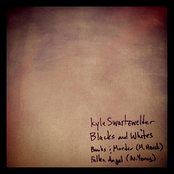 Kyle Swartzwelder
Blacks and Whites
Books : Murder (M. Hauck)
Fallen Angel (N. Young)